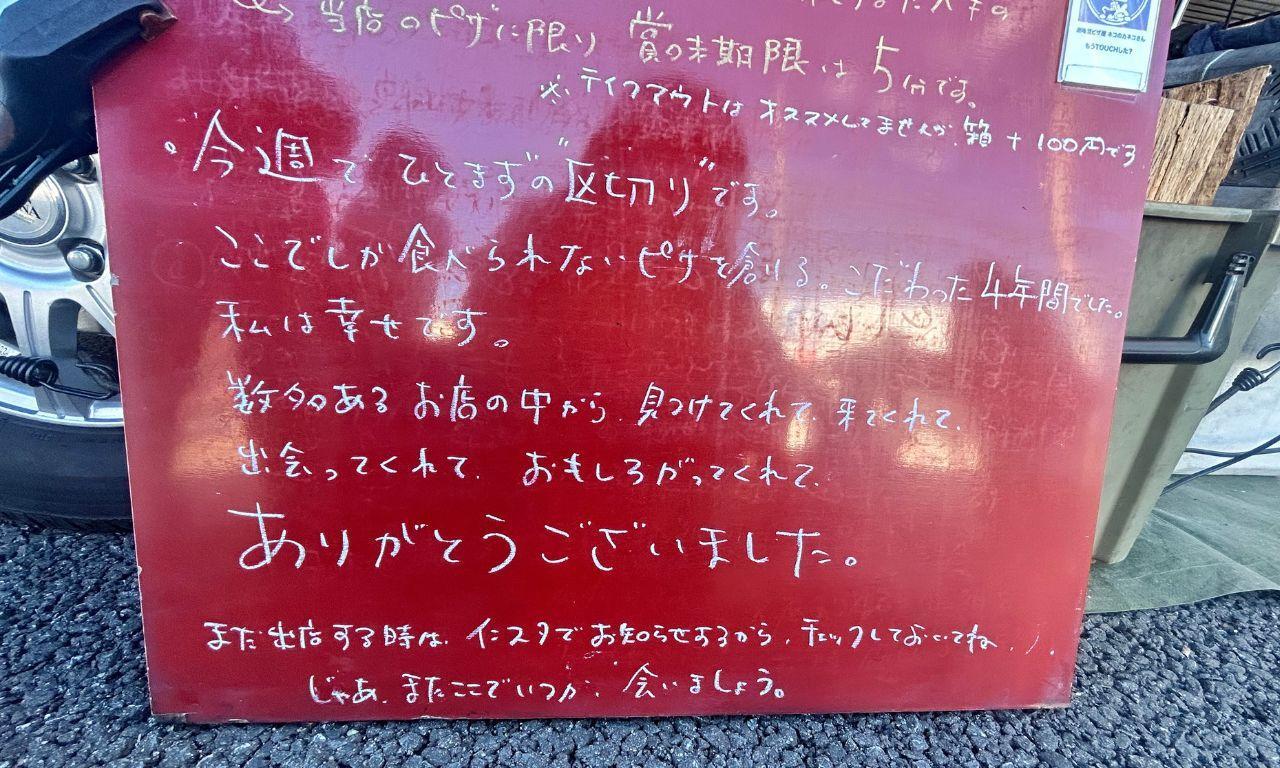 当店のピザに限り 賞味期限は5分です。
※テイクアウトはオススメしてませんが、箱+100円です
・今週でひとまずの"区切り"です。
ここでしか食べられないピザを創る。こだわった4年間でした。
私は幸せです。
数多あるお店の中から、見つけてくれて、来てくれて、
出会ってくれて、おもしろがってくれて、
ありがとうございました。
また出店する時は、インスタでお知らせするから、チェックしておいてね、
じゃあ、またここでいつか、会いましょう。
ネコのカネコさん
もうTOUCHした?